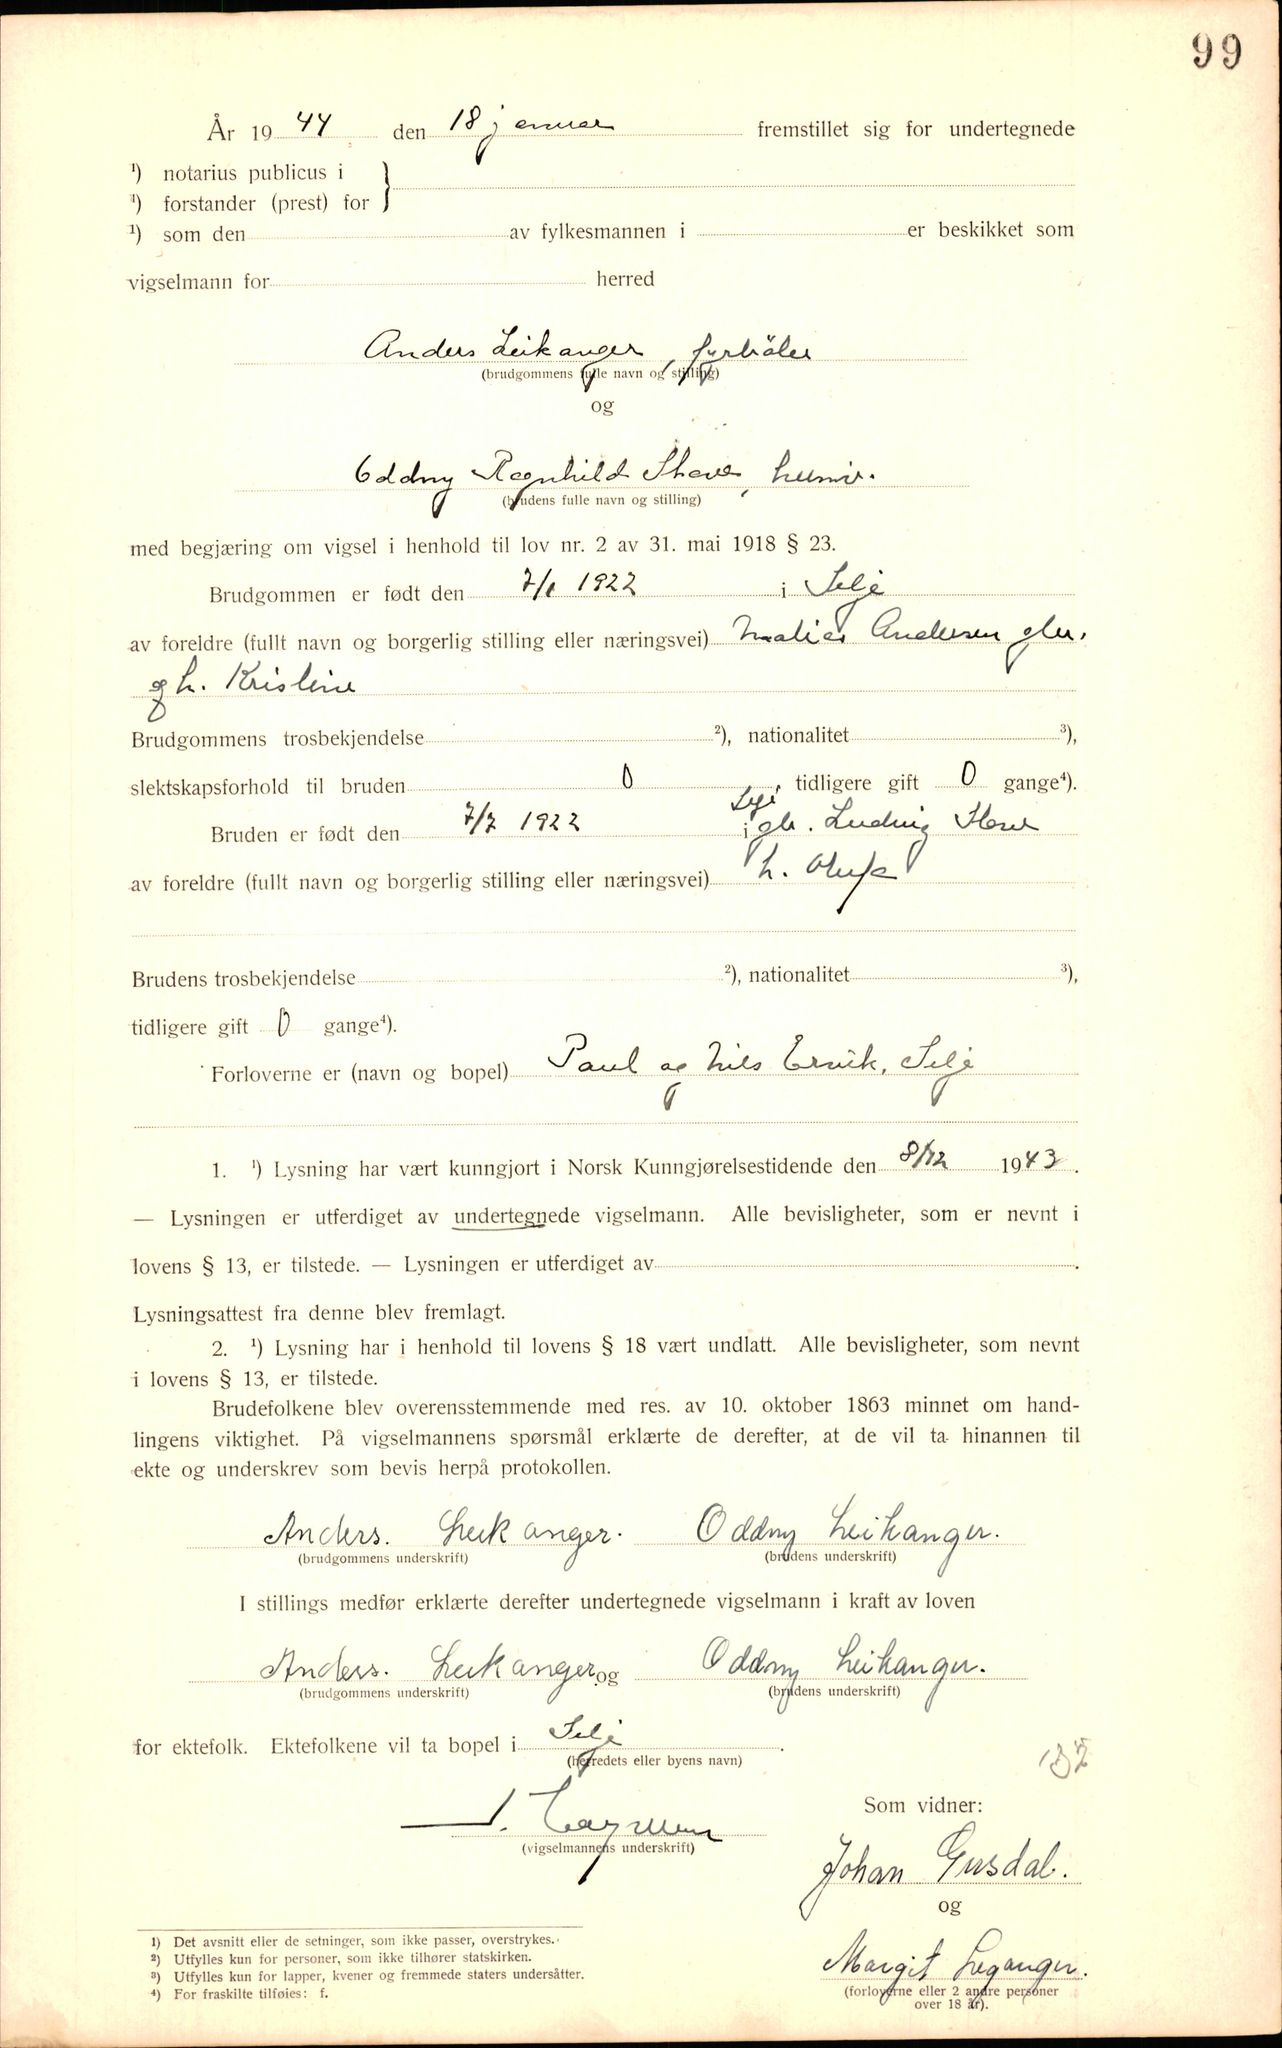 99
År 1944 den 18 januar fremstillet sig for undertegnede
¹) notarius publicus i
¹) forstander (prest) for
¹) som den av fylkesmannen i er beskikket som
vigselmann for herred
Anders Leikanger, fyrbøter
(brudgommens fulle navn og stilling)
og
Oddny Ragnhild Hove, husm.
(brudens fulle navn og stilling)
med begjæring om vigsel i henhold til lov nr. 2 av 31. mai 1918 § 23.
Brudgommen er født den 7/1 1922 i Selje
av foreldre (fullt navn og borgerlig stilling eller næringsvei) Andersen gbr.
og h. Kristine
Brudgommens trosbekjendelse ²), nationalitet ³),
slektskapsforhold til bruden 0, tidligere gift 0 gange⁴).
Selje
Bruden er født den 7/7 1922 i gbr. Ludvig Hove
av foreldre (fullt navn og borgerlig stilling eller næringsvei) h.
Brudens trosbekjendelse ²), nationalitet ³),
tidligere gift 0 gange⁴).
Forloverne er (navn og bopel) Paul og Nils Ervik, Selje
1. ¹) Lysning har vært kunngjort i Norsk Kunngjørelsestidende den 8/12 1943.
— Lysningen er utferdiget av undertegnede vigselmann. Alle bevisligheter, som er nevnt i
lovens § 13, er tilstede. — Lysningen er utferdiget av .
Lysningsattest fra denne blev fremlagt.
2. ¹) Lysning har i henhold til lovens § 18 vært undlatt. Alle bevisligheter, som nevnt
i lovens § 13, er tilstede.
Brudefolkene blev overensstemmende med res. av 10. oktober 1863 minnet om hand-
lingens viktighet. På vigselmannens spørsmål erklærte de derefter, at de vil ta hinannen til
ekte og underskrev som bevis herpå protokollen.
Anders. Leikanger. Oddny Leikanger.
(brudgommens underskrift) (brudens underskrift)
I stillings medfør erklærte derefter undertegnede vigselmann i kraft av loven
Anders. Leikanger og Oddny Leikanger.
(brudgommens underskrift) (brudens underskrift)
for ektefolk. Ektefolkene vil ta bopel i Selje.
(herredets eller byens navn)
137
Som vidner:
(vigselmannens underskrift)
Johan Gusdal.
og
Margit Leganger.
(forloverne eller 2 andre personer
over 18 år).
1) Det avsnitt eller de setninger, som ikke passer, overstrykes.
2) Utfylles kun for personer, som ikke tilhører statskirken.
3) Utfylles kun for lapper, kvener og fremmede staters undersåtter.
4) For fraskilte tilføies: f.